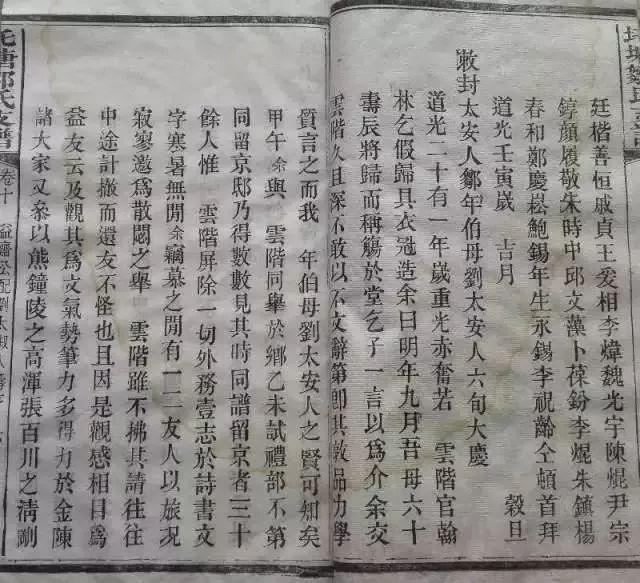 廷楷善恒戚貞王爰相李煒魏光宇陳焜尹宗
錞顏履敬朱時中邱文藻卜葆鈖李焜朱鎮楊
春和鄭慶崧鮑錫年生永錫李祝齡仝頓首拜
道光壬寅歲 吉月 穀旦
敕封太安人鄒年伯母劉太安人六旬大慶
道光二十有一年歲重光赤奮若 雲階官翰
林乞假歸具衣冠造余曰明年九月吾母六十
壽辰將歸而稱觴於堂乞子一言以爲介余交
雲階久且深不敢以不文辭第即其敦品力學
質言之而我 年伯母劉太安人之賢可知矣
甲午余與 雲階同舉於鄉乙未試禮部不第
同留京邸乃得數數見其時同譜留京者三十
餘人惟 雲階屏除一切外務壹志於詩書文
字寒暑無閒余竊慕之閒有一二友人以旅况
寂寥邀爲散悶之舉 雲階雖不拂其請往往
中途計撤而還友不怪也且因是觀感相目爲
益友云及觀其爲文氣勢筆力多得力於金陳
諸大家又叅以熊鐘陵之高渾張百川之淸剛
氏支譜
卷十